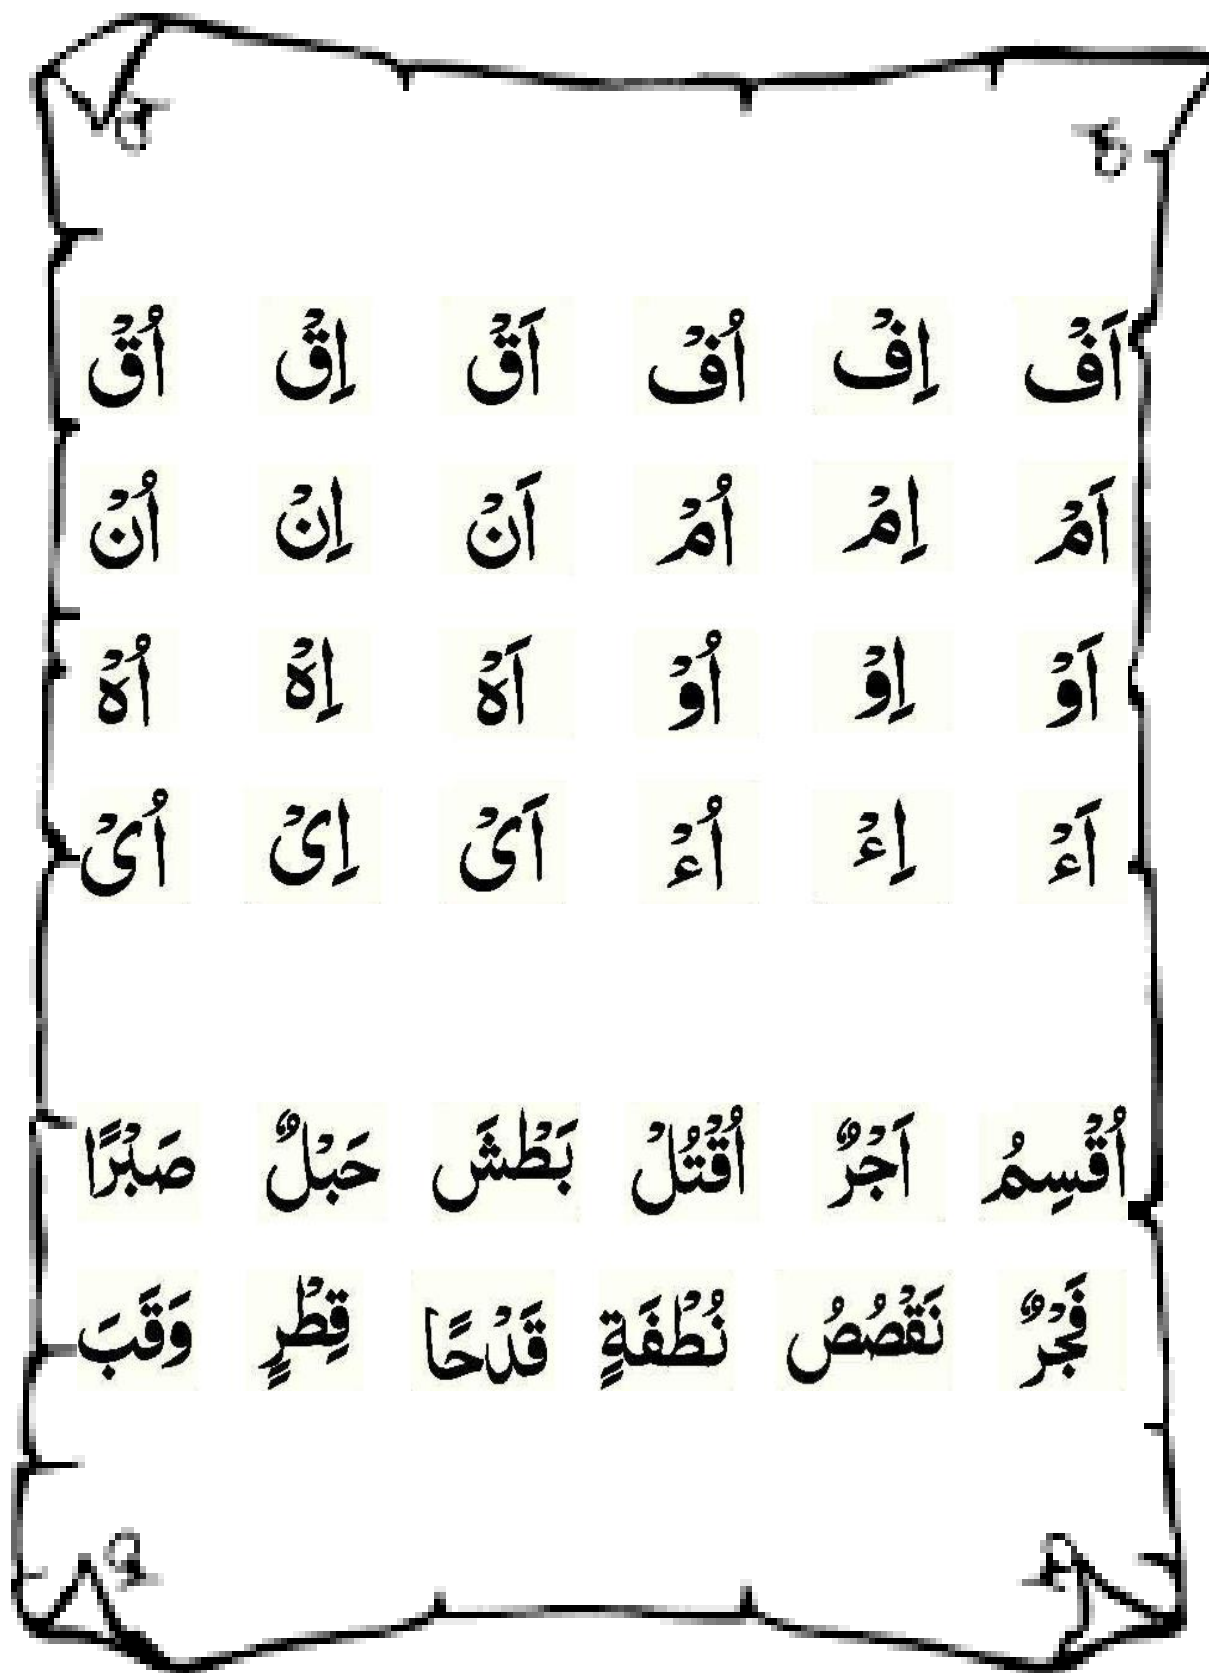 اَفْ اِفْ اُفْ اَقْ اِقْ اُقْ
اَمْ اِمْ اُمْ اَنْ اِنْ اُنْ
اَوْ اِوْ اُوْ اَهْ اِهْ اُهْ
اَءْ اِءْ اُءْ اَیْ اِیْ اُیْ
اُقْسِمُ اَجْرٌ اُقْتُلْ بَطْشَ حَبْلٌ صَبْرًا
فَجْرٌ نَقْصُصُ نُطْفَةٍ قَدْحًا قِطْرٍ وَقَبَ